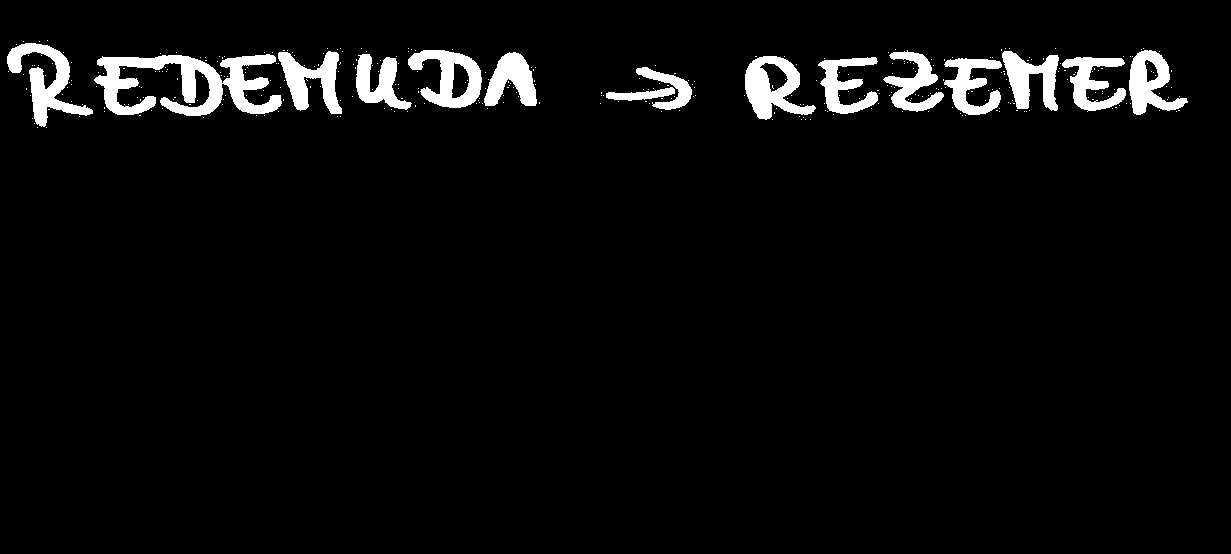 REDEMUDA → REZEMER